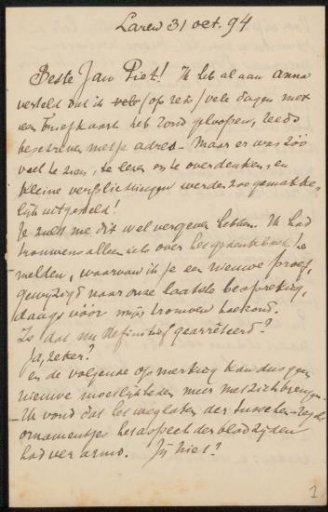 Laren 31 oct. 94
Beste Jan Piet! Ik heb al aan Anna
verteld dat ik (op reis) vele dagen met
een briefkaart heb rond geloopen, reeds
beschreven met je adres. Maar er was zóó
veel te zien, te leven en te overdenken, en
kleine verplichtingen werden zoo gemakke-
lijk uitgesteld!
Je zult me dit wel vergeven hebben. Ik had
trouwens alleen iets over het gedenkboek te
melden, waarvan ik je een nieuwe proef,
gewijzigd naar onze laatste bespreking,
daags vóór mijn trouwen toekond.
Is dat nu definitief gearrêteerd?
Ja, zeker?
en de volgende opmerking kan dus geen
nieuwe moeilijkheden meer met zich brengen.
Ik vond dat het weglaten der tusschen-regel
ornamentjes het aspect der bladzijden
had verarmd. Jij niet?
1